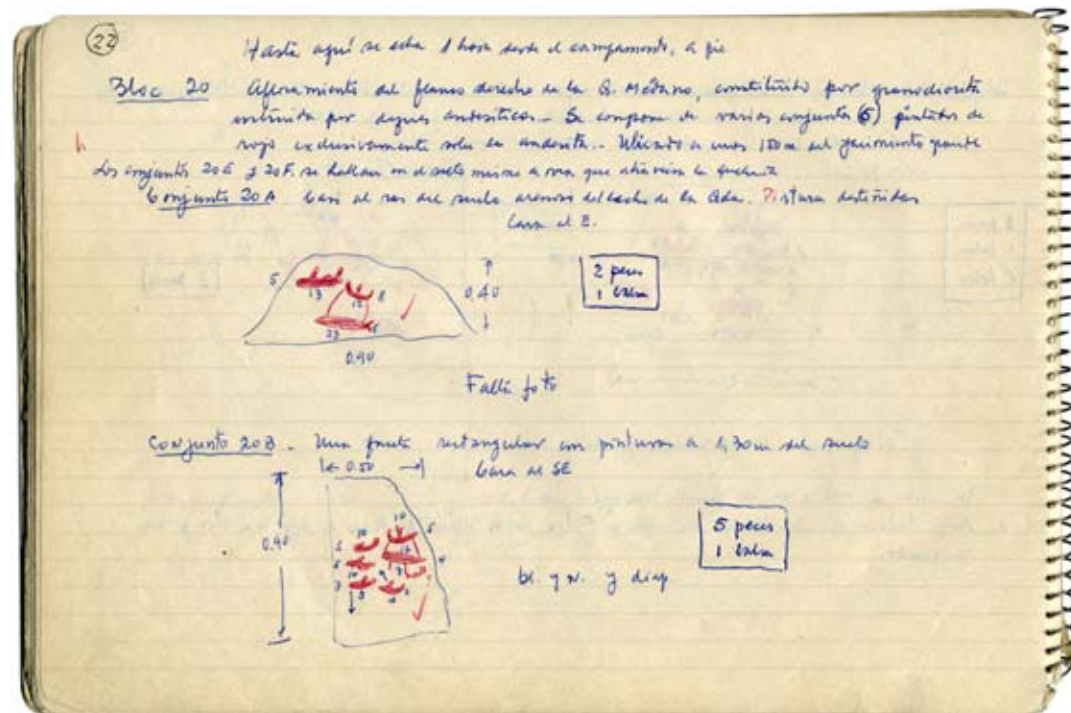 22
Hasta aquí se echa 1 hora desde el campamento, a pie
Bloc 20 Afloramiento del flanco derecho de la Q. Médano, constituído por granodiorita
intruida por diques andesíticos.- Se compone de varios conjuntos (6) pintados de
rojo exclusivamente sobre la andesita.- Ubicado a unos 150m del yacimiento grande
Los conjuntos 20E y 20F. se hallan en el suelo mismo
Conjunto 20A. Casi al ras del suelo arenoso del lecho de la Qda. Pinturas desteñidas
Cara al E.
5
13
12
8
22
0.40
0.90
2 peces
1 balsa
Falló foto
Conjunto 20B. Una faceta rectangular con pinturas a 1,30m del suelo
0.50
Cara al SE
0.90
5 peces
1 balsa
bl. y n. y diap